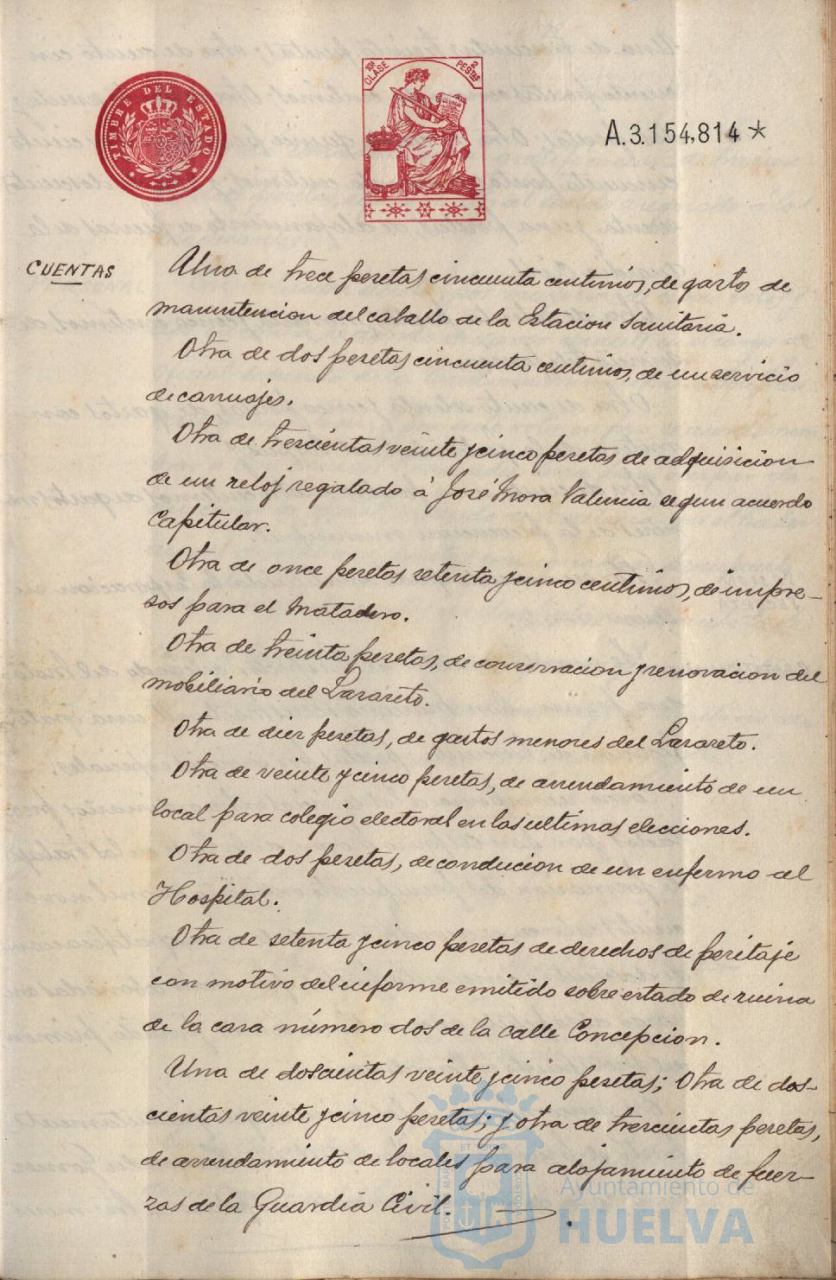 TIMBRE DEL ESTADO
10ª CLASE 2 PESETAS
A.3.154,814*
CUENTAS
Una de trece pesetas cincuenta centimos, de gastos de
manutencion del caballo de la Estacion Sanitaria.
Otra de dos pesetas cincuenta centimos, de un servicio
de carruajes.
Otra de trescientas veinte y cinco pesetas de adquisicion
de un reloj regalado á José Mora Valencia segun acuerdo
Capitular.
Otra de once pesetas setenta y cinco centimos, de impre-
sos para el Matadero.
Otra de treinta pesetas, de conservacion y renovacion del
mobiliario del Lazareto.
Otra de diez pesetas, de gastos menores del Lazareto.
Otra de veinte y cinco pesetas, de arrendamiento de un
local para colegio electoral en las ultimas elecciones.
Otra de dos pesetas, de conducion de un enfermo al
Hospital.
Otra de setenta y cinco pesetas de derechos de peritaje
con motivo del informe emitido sobre estado de ruina
de la casa número dos de la calle Concepcion.
Una de doscientas veinte y cinco pesetas; Otra de dos-
cientas veinte y cinco pesetas; y otra de trescientas pesetas,
de arrendamiento de locales para alojamiento de fuer-
zas de la Guardia Civil.
Ayuntamiento de
HUELVA